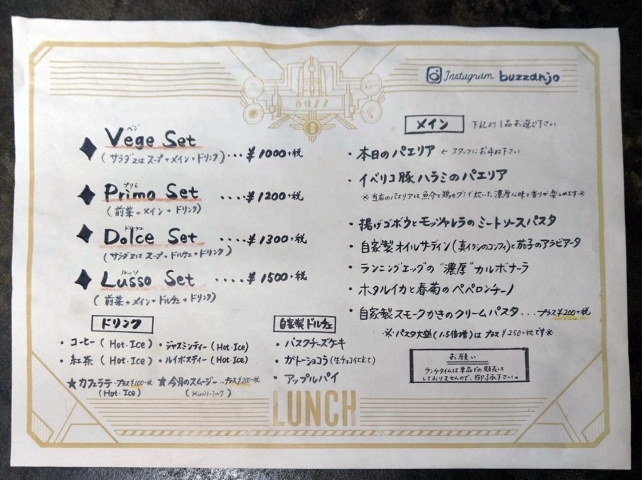 Instagram buzzanjo
BUZZ
ベジ
Vege Set
(サラダ又はスープ+メイン+ドリンク)
‥‥¥1000+税
プリモ
Primo Set
(前菜+メイン+ドリンク)
‥‥¥1200+税
ドルチェ
Dolce Set
(サラダ又はスープ+ドルチェ+ドリンク)
‥‥¥1300+税
ルッソ
Lusso Set
(前菜+メイン+ドルチェ+ドリンク)
‥‥¥1500+税
ドリンク
・コーヒー(Hot・Ice)
・ジャスミンティー(Hot・Ice)
・紅茶(Hot・Ice)
・ルイボスティー(Hot・Ice)
★カフェラテ‥プラス¥100+税
(Hot・Ice)
★今月のスムージー‥プラス¥200+税
自家製ドルチェ
・バスクチーズケーキ
・ガトーショコラ(生チョコ仕立て)
・アップルパイ
メイン
下記より1品お選び下さい
・本日のパエリア ←スタッフにお尋ね下さい
・イベリコ豚ハラミのパエリア
※当店のパエリアは魚介と鶏のダシで炊いた濃厚な味と香りが楽しめます※
・揚げゴボウとモッツァレラのミートソースパスタ
・自家製オイルサーディン(真イワシのコンフィ)と茄子のアラビアータ
・ランニングエッグの"濃厚"カルボナーラ
・ホタルイカと春菊のペペロンチーノ
・自家製スモークかきのクリームパスタ‥‥プラス¥200+税
※パスタ大盛(1.5倍増)は プラス ¥250+税です※
お願い
ランチタイムは単品での販売は
しておりませんので、御了承下さい。
LUNCH